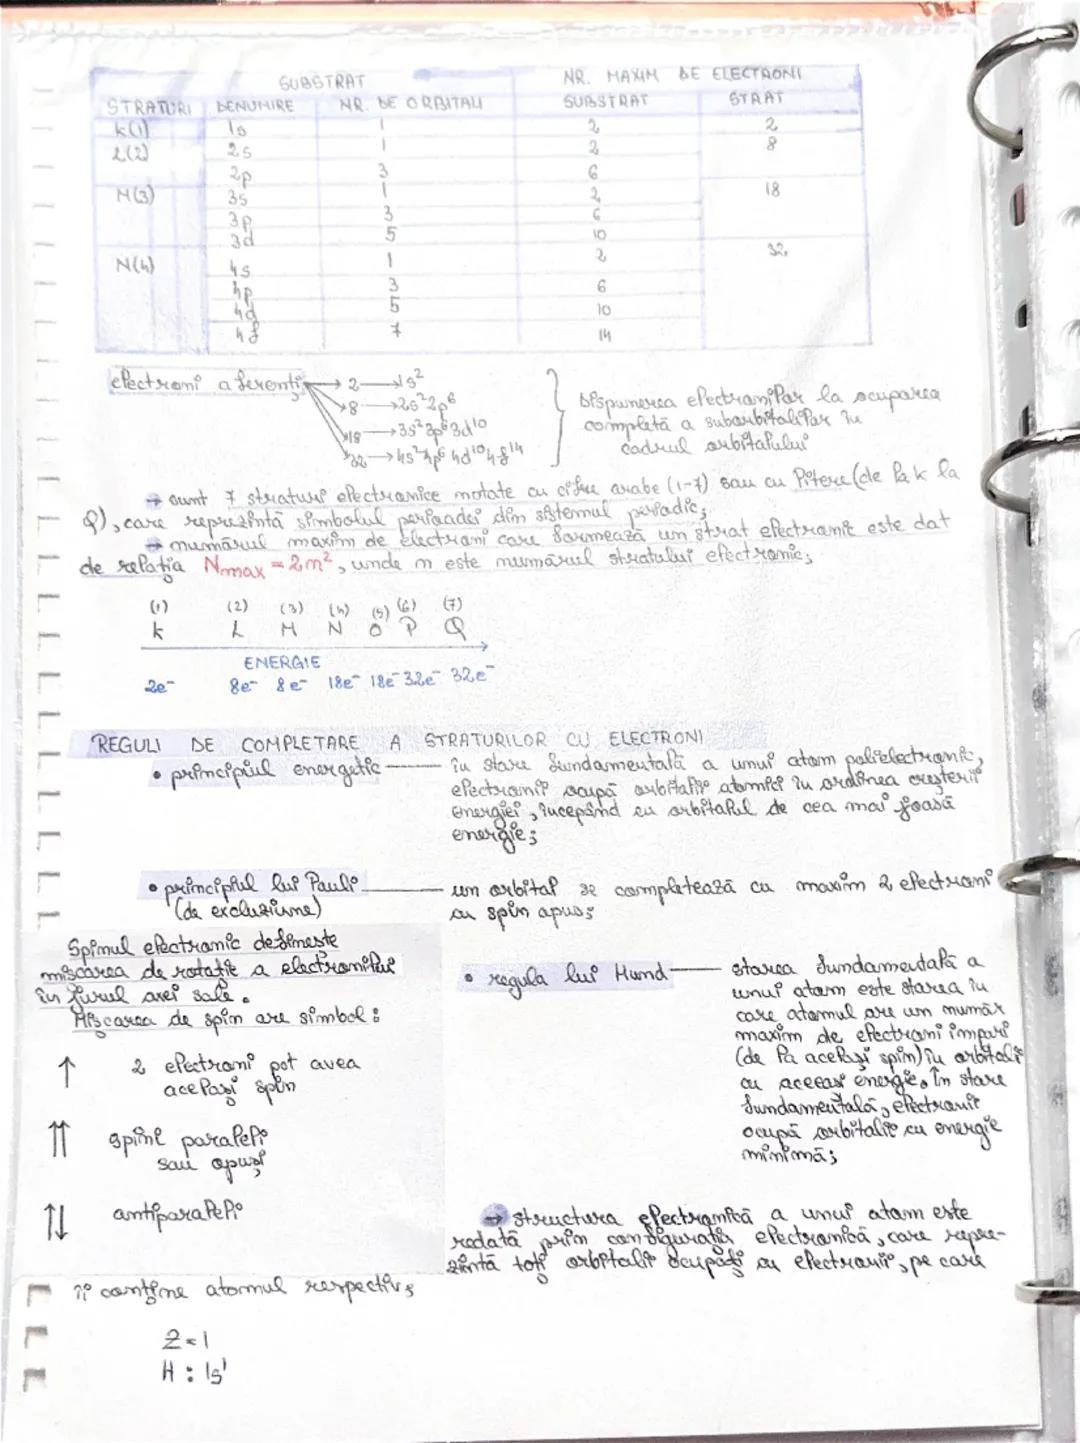 SUBSTRAT NR. MAXIM DE ELECTRONI
STRATURI DENUMIRE NR. DE ORBITALI SUBSTRAT STRAT
K(1) 1s 1 2 2
L(2) 2s 1 2 8
2p 3 6
M(3) 3s 1 2 18
3p 3 6
3d 5 10
N(4) 4s 1 2 32
4p 3 6
4d 5 10
4f 7 14
electroni aferenți → 2 → 1s²
→ 8 → 2s² 2p⁶
→ 18 → 3s² 3p⁶ 3d¹⁰
→ 32 → 4s² 4p⁶ 4d¹⁰ 4f¹⁴
Dispunerea electronilor la ocuparea
completă a suborbitalilor în
cadrul orbitalului
→ sunt 7 straturi electronice notate cu cifre arabe (1-7) sau cu litere (de la K la
Q), care reprezintă simbolul perioadei din sistemul periodic;
→ numărul maxim de electroni care formează un strat electronic este dat
de relația Nmax = 2n², unde n este numărul stratului electronic;
(1) (2) (3) (4) (5) (6) (7)
K L M N O P Q
ENERGIE
2e⁻ 8e⁻ 8e⁻ 18e⁻ 18e⁻ 32e⁻ 32e⁻
REGULI DE COMPLETARE A STRATURILOR CU ELECTRONI
• principiul energetic — în stare fundamentală a unui atom polielectronic,
electronii ocupă orbitalii atomici în ordinea creșterii
energiei, începând cu orbitalul de cea mai joasă
energie;
• principiul lui Pauli — un orbital se completează cu maxim 2 electroni
(de excluziune) cu spin opus;
Spinul electronic definește
mișcarea de rotație a electronului
în jurul axei sale.
Mișcarea de spin are simbol:
↑ 2 electroni pot avea
același spin
↑↑ spini paraleli
sau opuși
↑↓ antiparaleli
• regula lui Hund — starea fundamentală a
unui atom este starea în
care atomul are un număr
maxim de electroni impari
(de la același spin) în orbitali
cu aceeași energie. În stare
fundamentală, electronii
ocupă orbitalii cu energie
minimă;
→ structura electronică a unui atom este
redată prin configurația electronică, care repre-
zintă toți orbitalii ocupați cu electronii, pe care
îi conține atomul respectiv;
Z=1
H : 1s¹